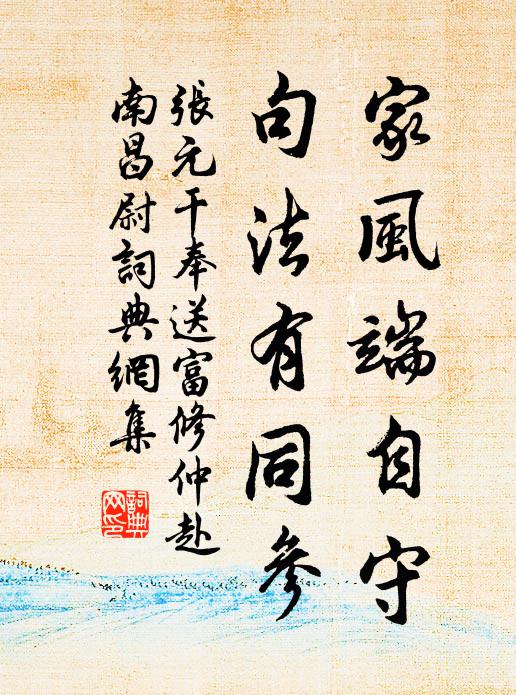 家風端自守
句法有同參
張元干奉送富修仲赴
南昌尉詞典網集
詞典
网印